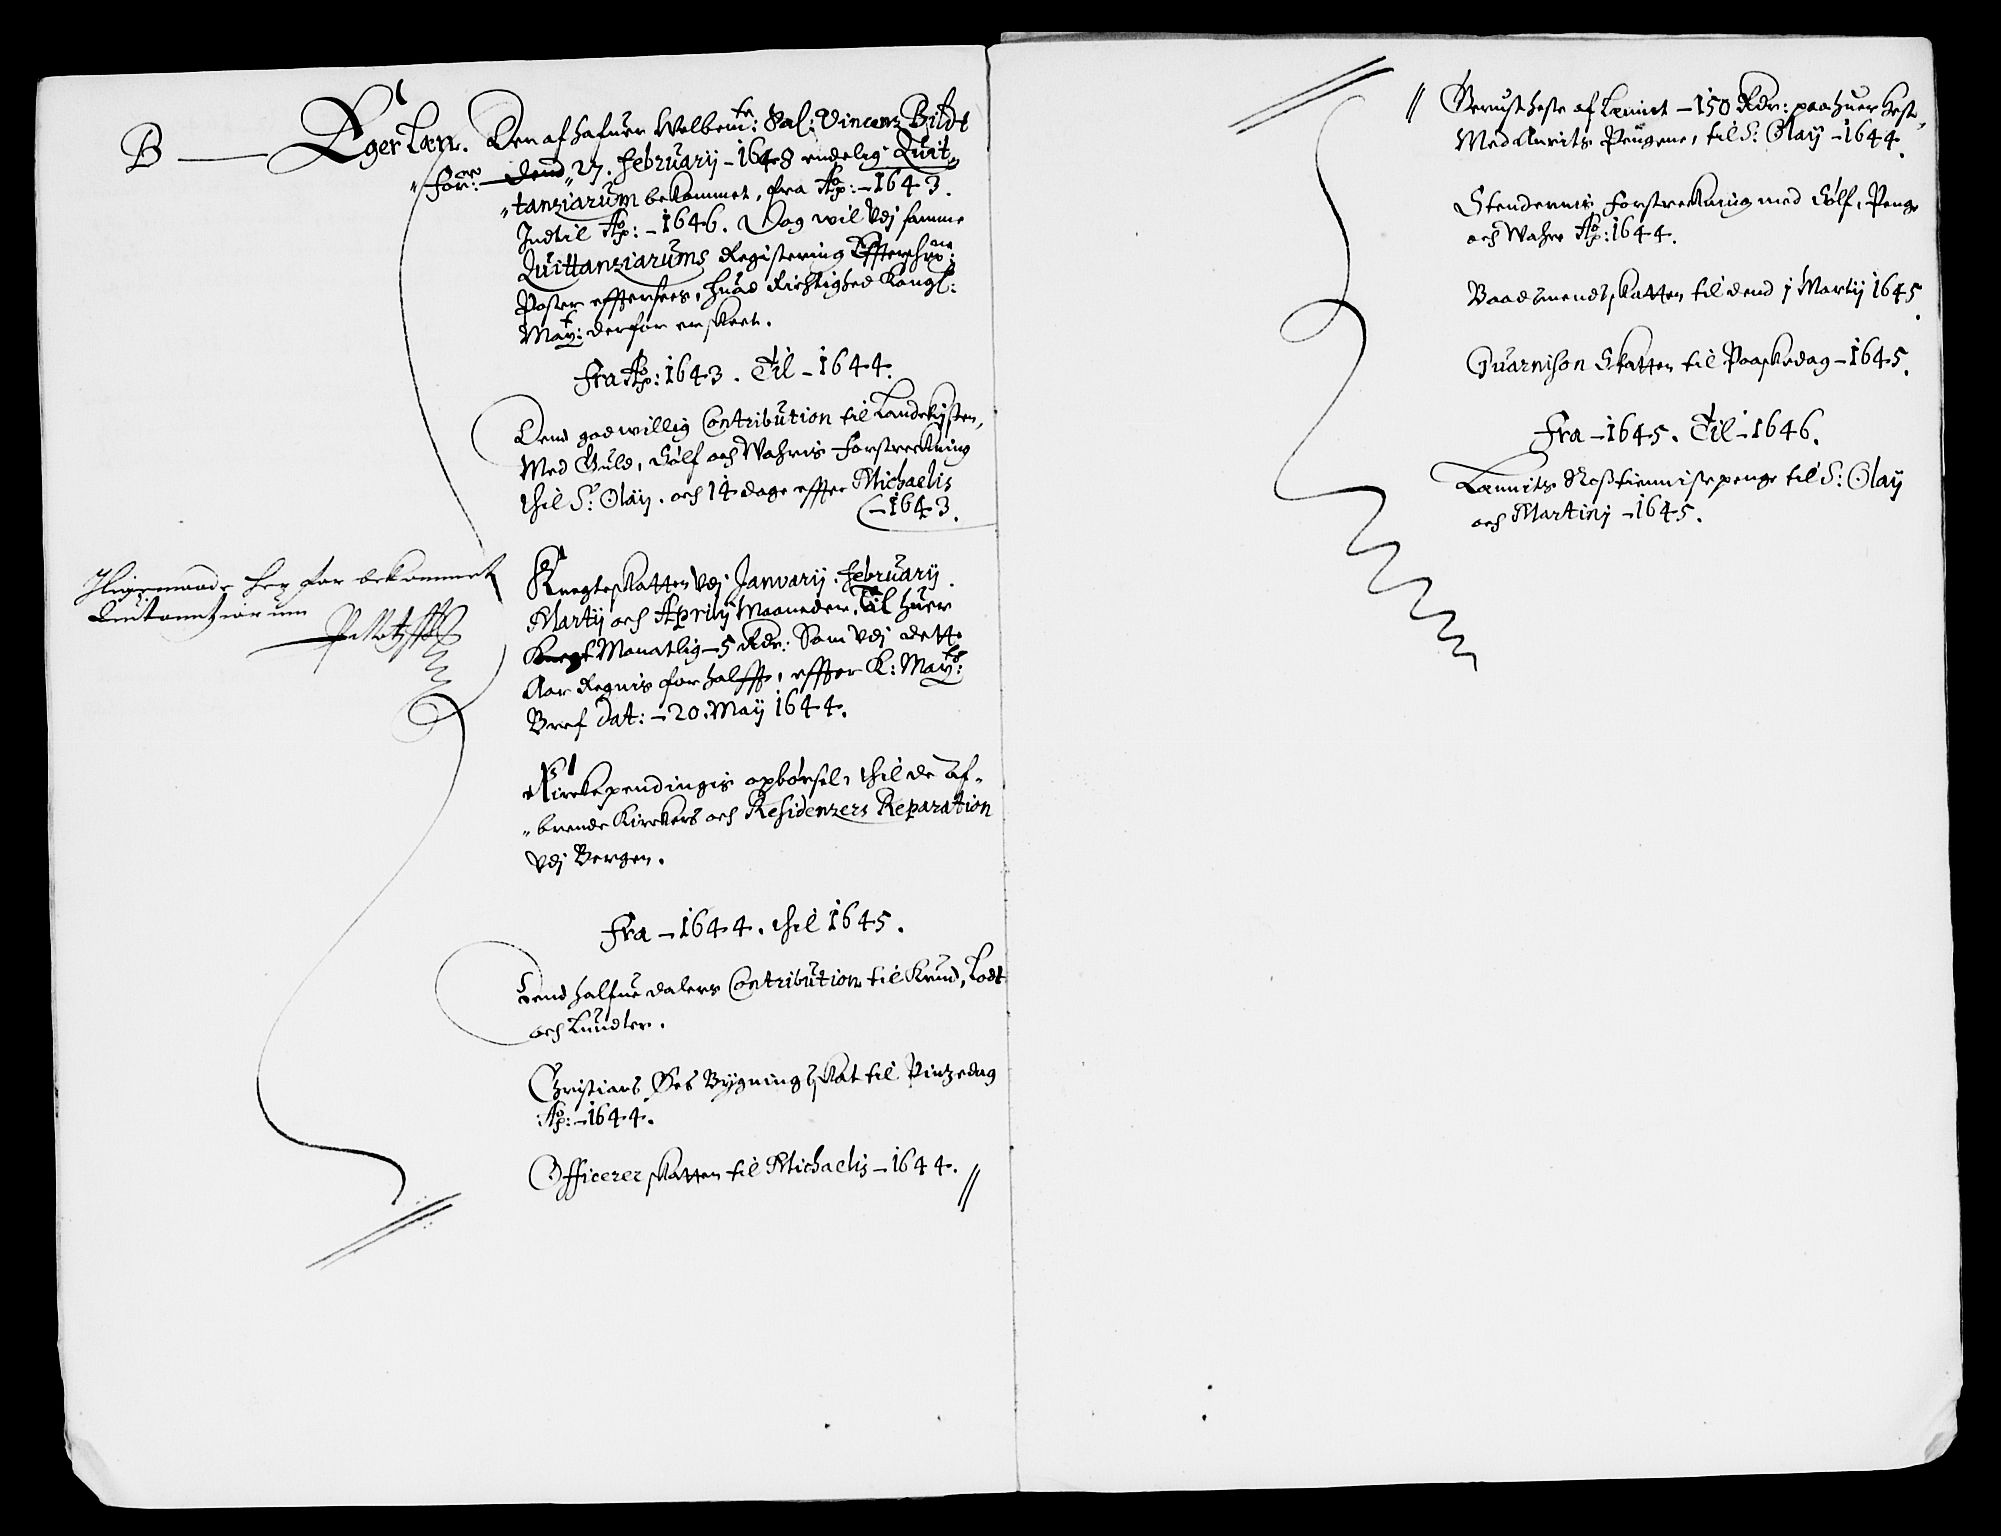 B — Eger Læn. Der af hafuer Welbem:te Sal: Vincenz Bildt
"for:ne — Dend 27. February – 1648 endelig Quit„
„tanziarum bekommet, fra Ao: – 1643.
Indtil Ao: – 1646. Dog wil Vdj samme
Quittanziarums Registering Effterschr:ne
Poster efftersees, huad Richtighed Kongl:
May:t derfor er skeet.
Fra Ao: 1643. Til – 1644.
Dend godwillig Contribution til Landekisten,
Med Guld, Sølf och Wahris Forstreckning
thil S: Olaÿ. och 14 dage effter Michaelis
– 1643.
Knegteskatten Vdj Januarij. February.
Martij och Aprilij Maaneder, Til huer
Knegt Monatlig – 5 Rdr: Som Vdj dette
Aar Regnis for halffte, effter K: May:ts
Bref dat: – 20. Maÿ 1644.
Ligemaade her for bekommet
Quitantziarum
Kirckependingis opbørsel, thil de af„
„brende Kirckers och Residenzers Reparation
Vdj Bergen.
Fra – 1644. thil 1645.
Dend halfue dalers Contribution til Krud, Lodt
och Lundter.
Christians Øes Bygningskat til Pintzedag
Ao: – 1644.
Officerer skatten til Michaelis – 1644. //
// Gerust heste af Lænnet – 150 Rdr: paa huer Hest,
Med Anrits Pengene, til S: Olaÿ – 1644.
Stendernis Forstreckning med Sølf, Penge
och Wahre Ao: 1644.
Baadsmendskatten til dend 1 Martij 1645.
Guarnison Skatten til Paaskedag – 1645.
Fra – 1645. Til – 1646.
Lænnits Rostiennistepenge til S: Olaÿ
och Martinj – 1645.